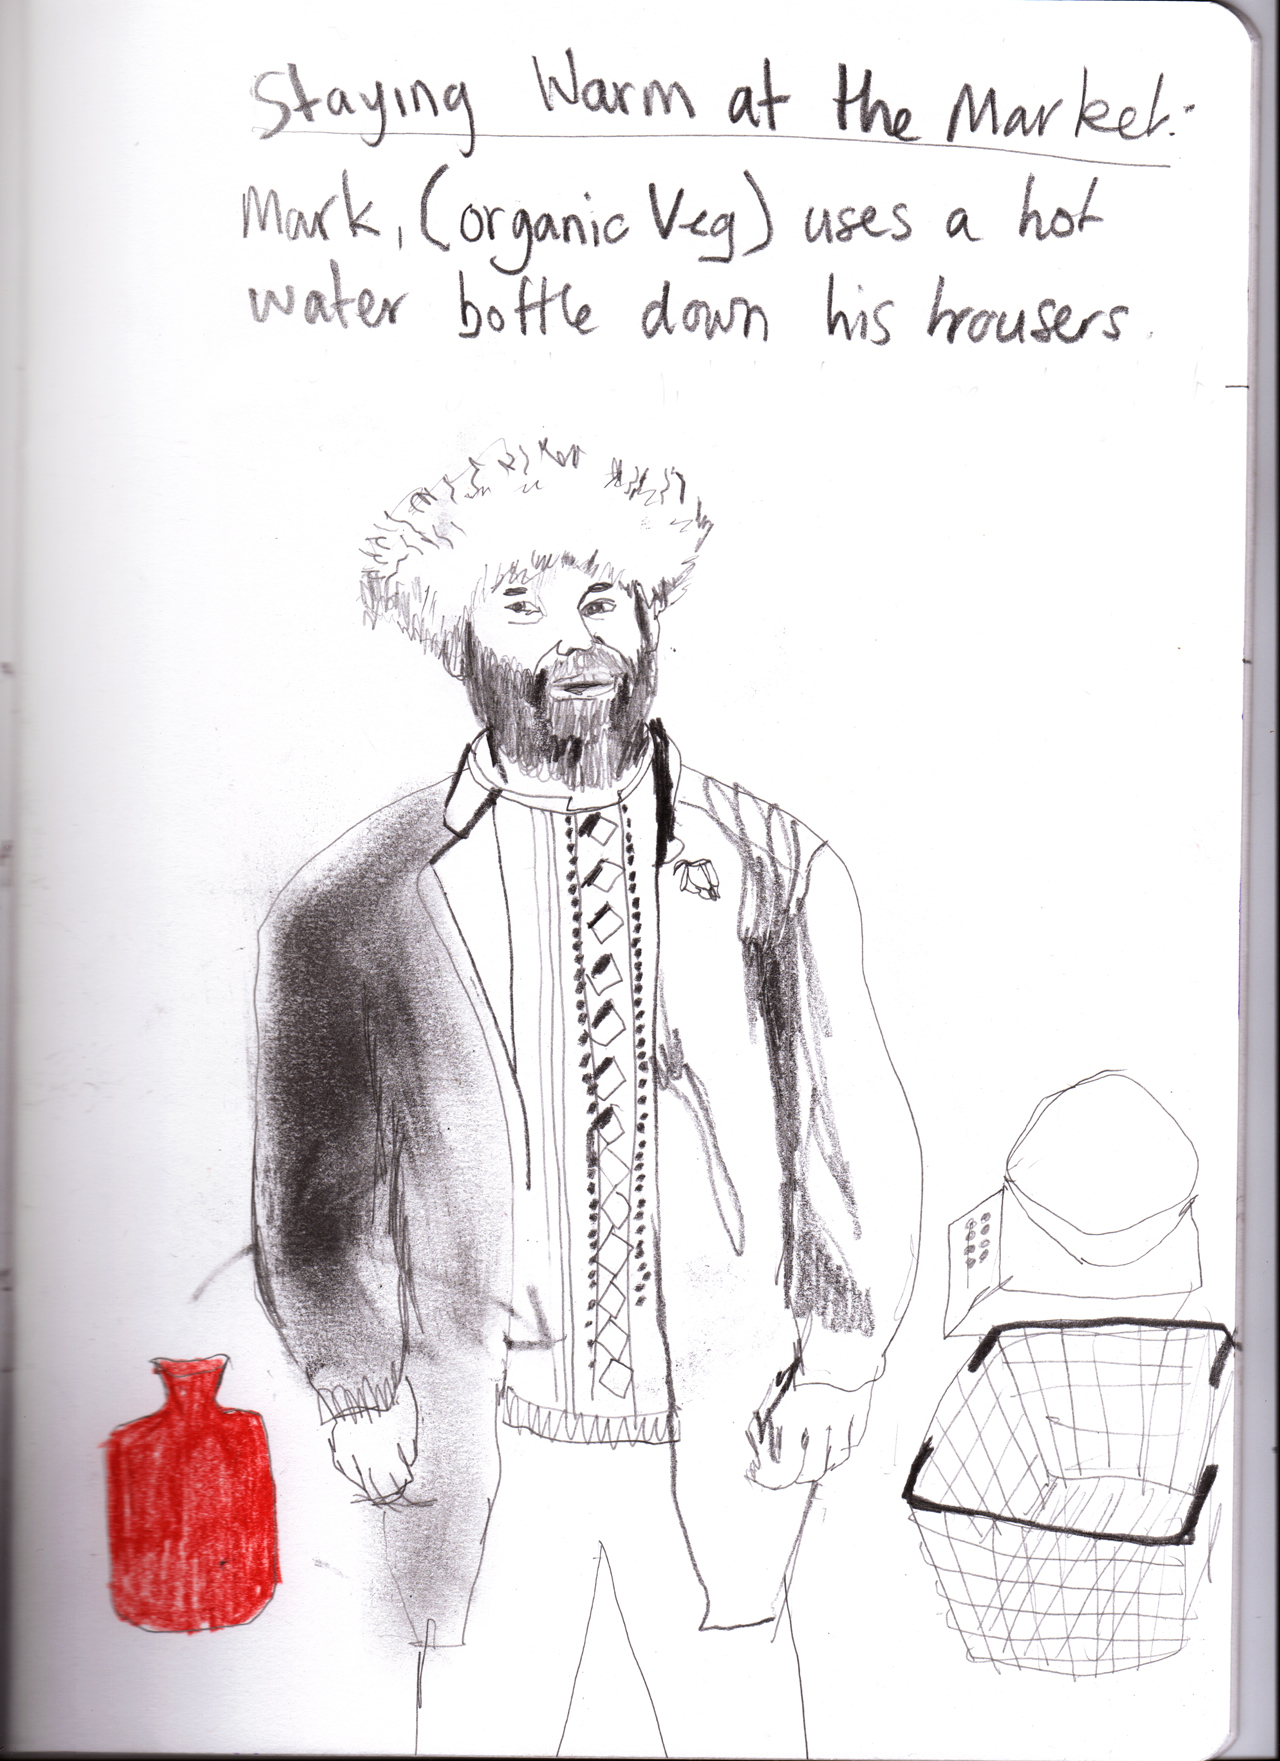 Staying Warm at the Market:-
Mark, (organic Veg) uses a hot
water bottle down his trousers.